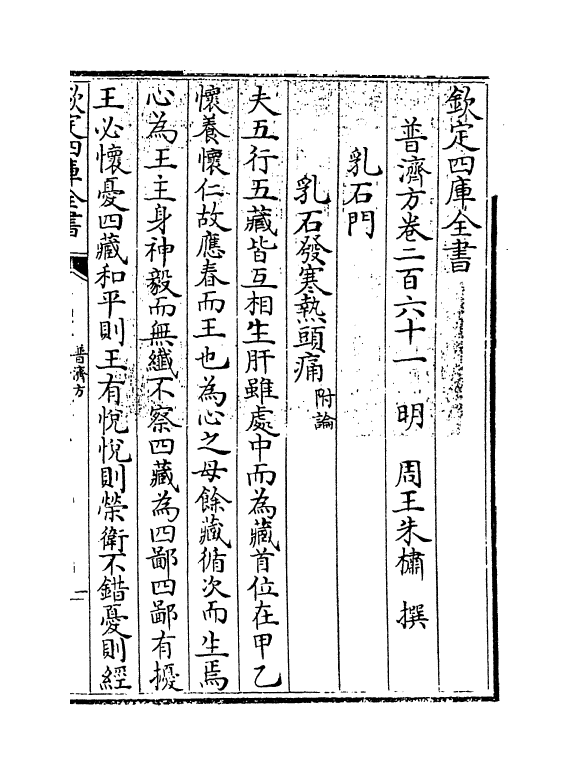 欽定四庫全書
普濟方卷二百六十一　明　周王朱橚　撰
乳石門
乳石發寒熱頭痛附論
夫五行五藏皆互相生肝雖處中而為藏首位在甲乙
懷養懷仁故應春而王也為心之母餘藏循次而生焉
心為王主身神毅而無纖不察四藏為四鄙四鄙有擾
王必懷憂四藏和平則王有悅悅則榮衛不錯憂則經
欽定四庫全書
普濟方
一